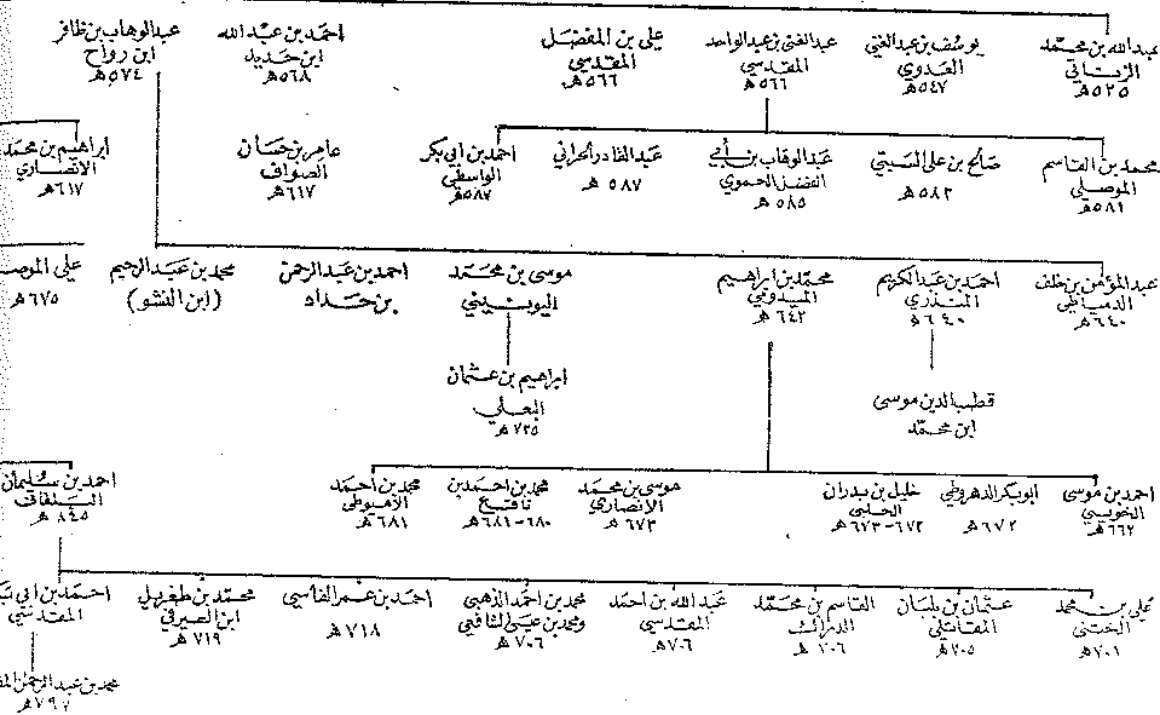 عبدالله بن محمّد
الزناتي
٥٢٥ هـ
يوسف بن عبد الغني
العدوي
٥٤٧ هـ
عبد الغني بن عبد الواحد
المقدسي
٥٦٦ هـ
علي بن المفضل
المقدسي
٥٦٦ هـ
احمد بن عبد الله
ابن حديد
٥٦٨ هـ
عبدالوهاب بن ظافر
ابن رواح
٥٧٤ هـ
محمد بن القاسم
الموصلي
٥٨١ هـ
صالح بن علي السبتي
٥٨٢ هـ
عبد الوهاب بن أبي
الفضل الحموي
٥٨٥ هـ
عبد القادر الحراني
٥٨٧ هـ
احمد بن ابي بكر
الواسطي
٥٨٧ هـ
عامر بن حسان
الصواف
٦١٧ هـ
ابراهيم بن محمد
الانصاري
٦١٧ هـ
عبد المؤمن بن خلف
الدمياطي
٦٤٠ هـ
احمد بن عبد الكريم
المنذري
٦٤٠ هـ
محمّد بن ابراهيم
الميدومي
٦٤٢ هـ
موسى بن محمّد
اليونيني
احمد بن عبد الرحمن
بن حداد
محمد بن عبد الرحيم
(ابن النشو)
علي الموص
٦٧٥ هـ
ابراهيم بن عثمان
البعلي
٧٢٥ هـ
قطب الدين موسى
ابن محمّد
احمد بن موسى
الخويي
٦٦٢ هـ
ابوبكر الدهروطي
٦٧٢ هـ
خليل بن بدران
الحلبي
٦٧٢-٦٧٣ هـ
موسى بن محمد
الانصاري
٦٧٣ هـ
محمد بن احمد بن
نافع
٦٨٠-٦٨١ هـ
محمد بن احمد
الأميوطي
٦٨١ هـ
احمد بن سليمان
٨٤٥ هـ
علي بن محمد
الختني
٧٠١ هـ
عثمان بن بلبان
المقاتلي
٧٠٥ هـ
القاسم بن محمّد
٧٠٦ هـ
عبد الله بن احمد
المقدسي
٧٠٦ هـ
محمد بن احمد الذهبي
ومحمد بن عيسى الشافعي
٧٠٦ هـ
احمد بن عمر الفاسي
٧١٨ هـ
محمّد بن طغريل
ابن الصيرفي
٧١٩ هـ
احمد بن ابي
المقدسي
محمد بن عبد الرحمن
٧٩٧ هـ